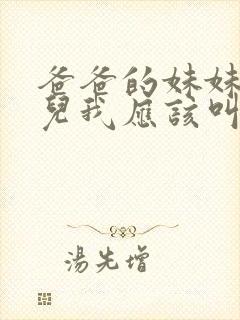 爸爸的妹妹
兒我應該叫
湯先增